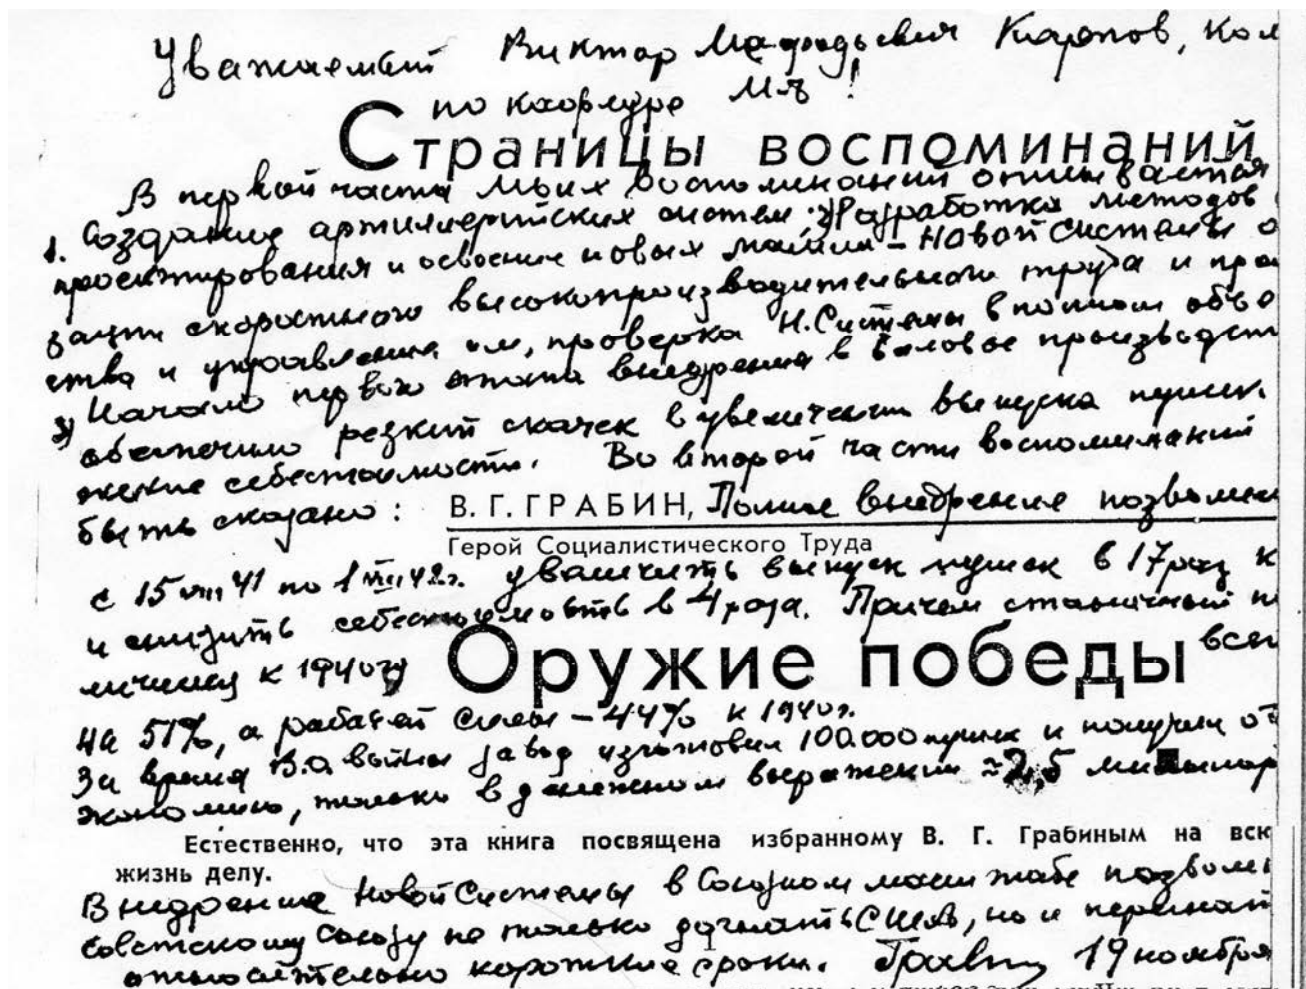 Уважаемый Виктор Мефодьевич Карепов, кол
по кафедре МЛ!
Страницы воспоминаний
В первой части моих воспоминаний описывается
1. Создание артиллерийских систем; 2) Разработка методов
проектирования и освоение новых машин – Новой Системы о
зации скоростного высокопроизводительного труда и про
ства и управление им, проверка Н. Системы в полном объе
3) Начало первого этапа внедрения в валовое производст
обеспечило резкий скачек в увеличении выпуска пушек.
жение себестоимости. Во второй части воспоминаний
быть сказано: В. Г. ГРАБИН, Полное внедрение позволил
Герой Социалистического Труда
с 15 VIII 41 по 1 VIII 42 г. увеличить выпуск пушек в 17 раз к
и снизить себестоимость в 4 раза. Причем станочный п
личился к 1940 г. всег
Оружие победы
на 51%, а рабочей силы – 44% к 1940 г.
За время В.О. войны завод изготовил 100.000 пушек и получил от
экономию, только в денежном выражении ≈ 2,5 миллиар
Естественно, что эта книга посвящена избранному В. Г. Грабиным на вск
жизнь делу.
Внедрение Новой Системы в Союзном масштабе позволи
Советскому Союзу не только догнать США, но и перегнат
относительно короткие сроки. Грабин 19 ноября